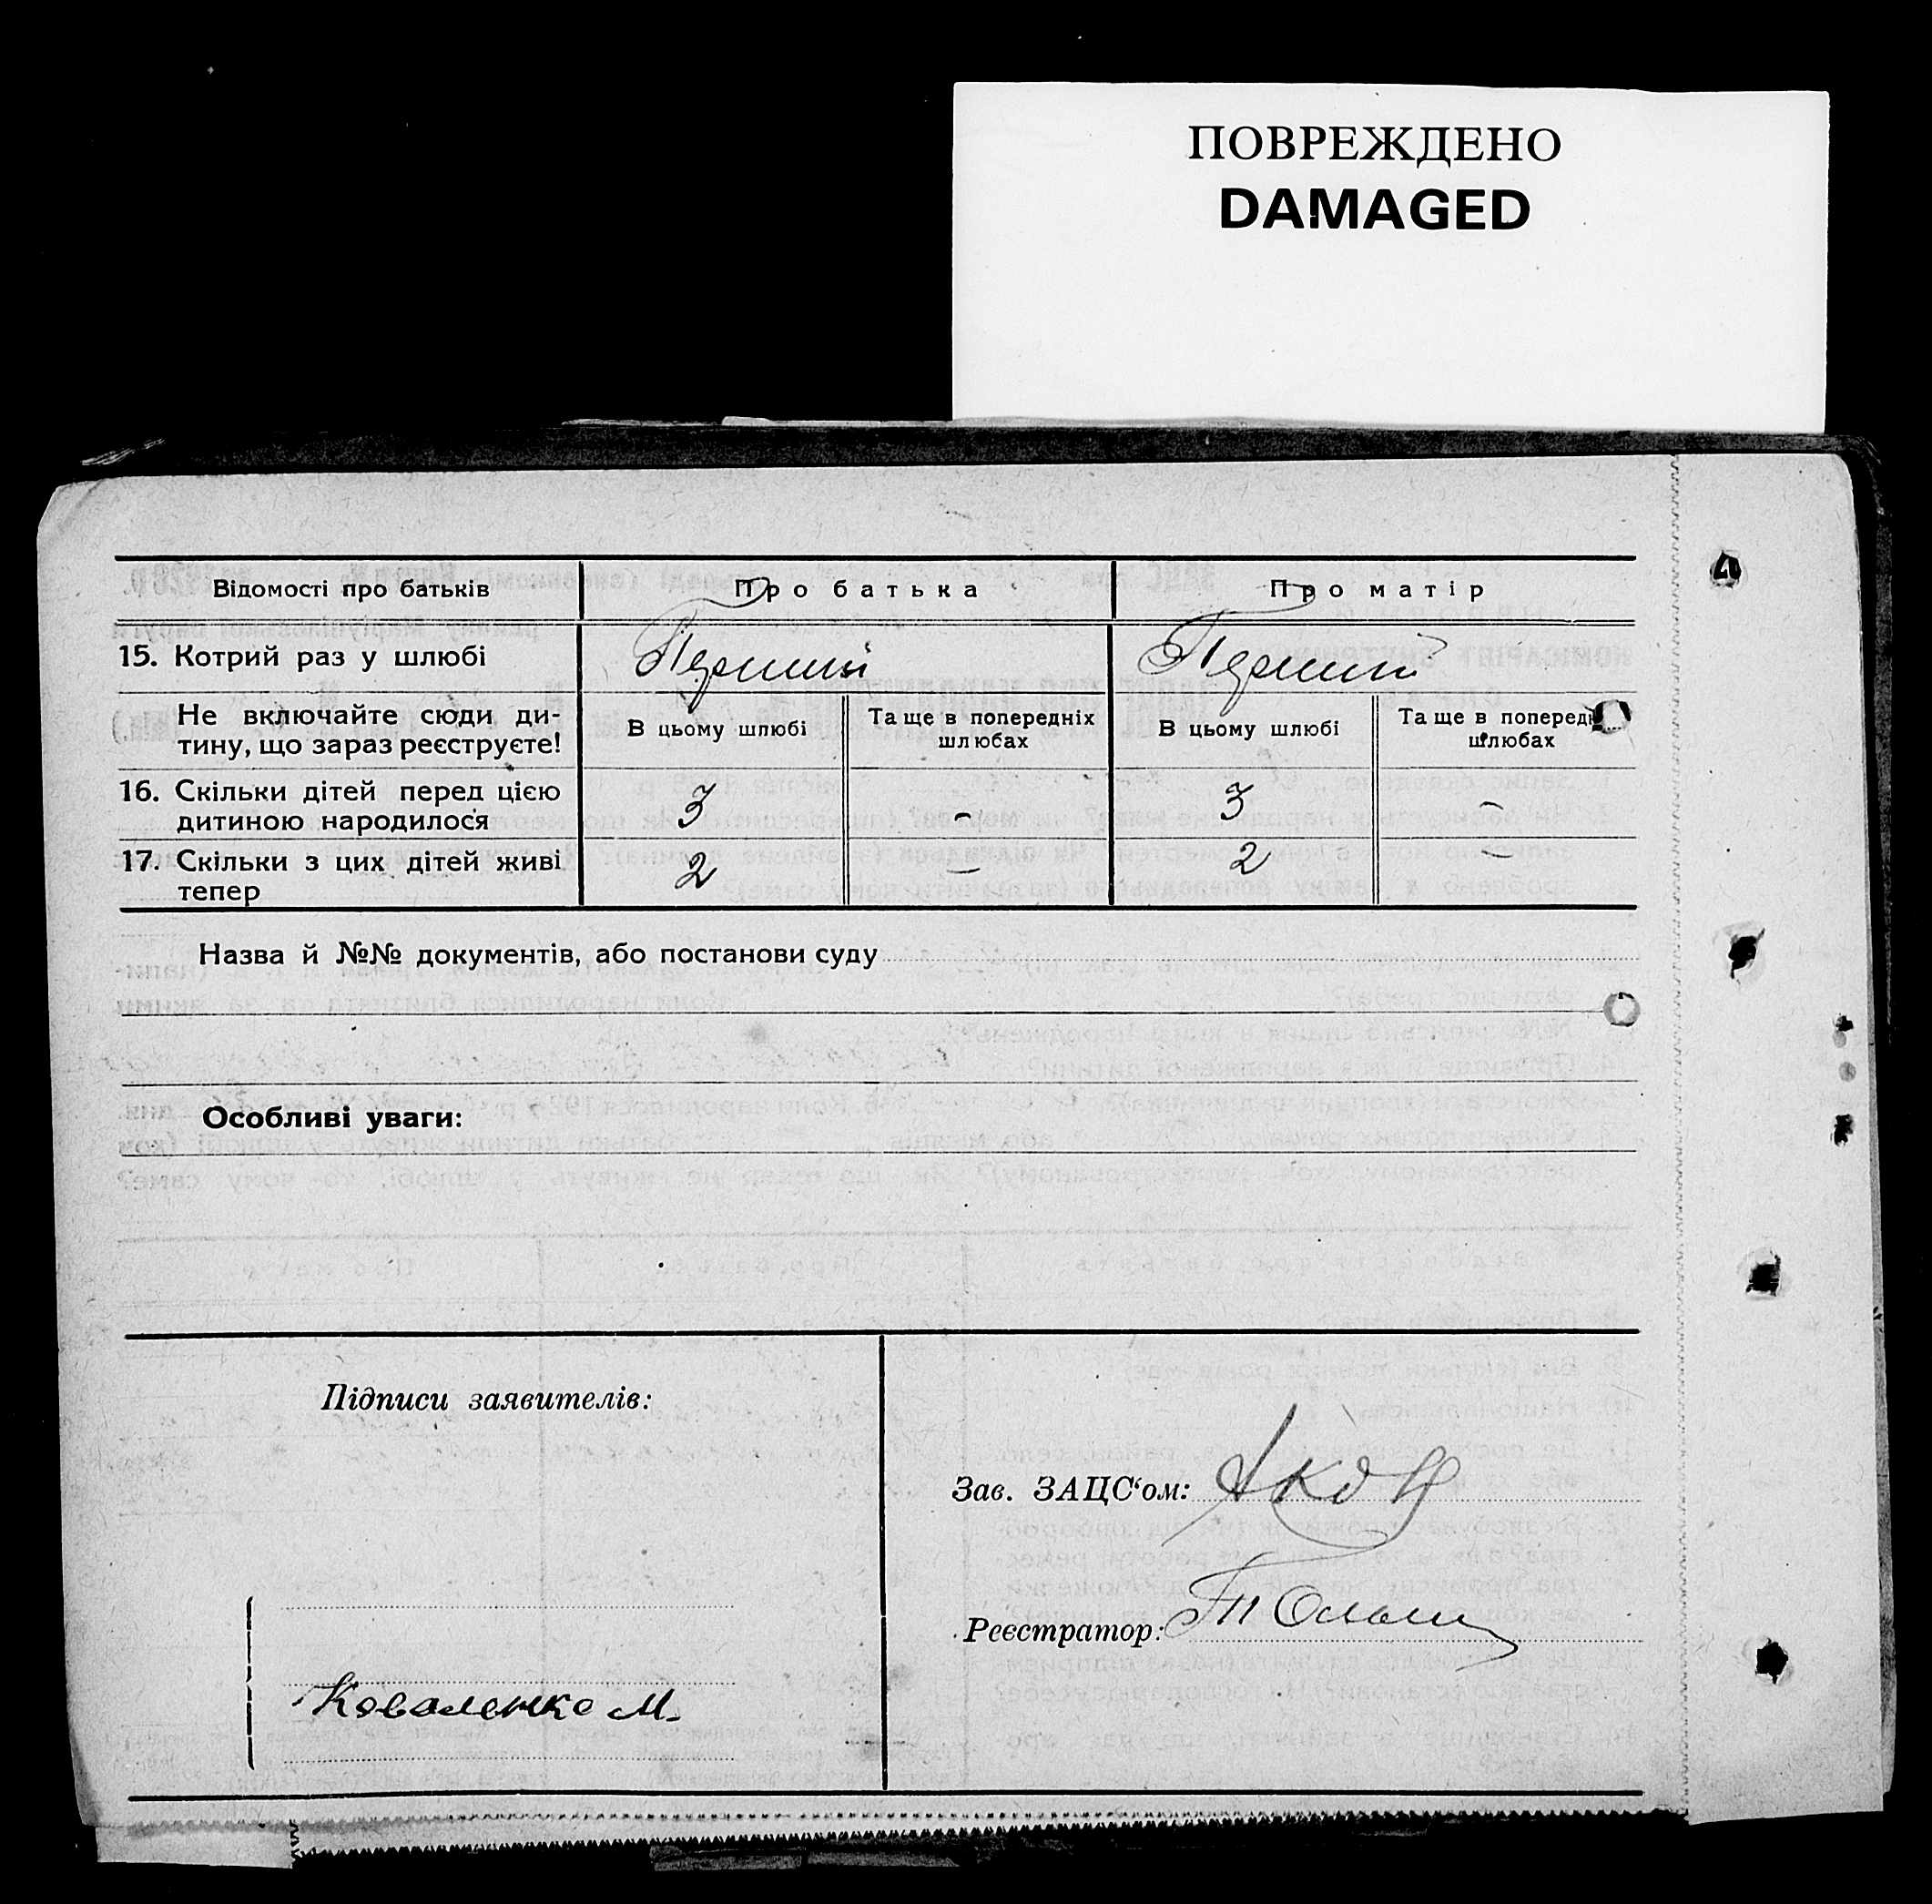 ПОВРЕЖДЕНО
DAMAGED
Відомості про батьків
Про батька
Про матір
15. Котрий раз у шлюбі
Перший
Перший
Не включайте сюди ди-
тину, що зараз реєструєте!
В цьому шлюбі
Та ще в попередніх
шлюбах
В цьому шлюбі
Та ще в поперед
шлюбах
16. Скільки дітей перед цією
дитиною народилося
3
-
3
-
17. Скільки з цих дітей живі
тепер
2
-
2
-
Назва й №№ документів, або постанови суду
Особливі уваги:
Підписи заявителів:
Коваленко М.
Зав. ЗАЦС‘ом:
Реєстратор: